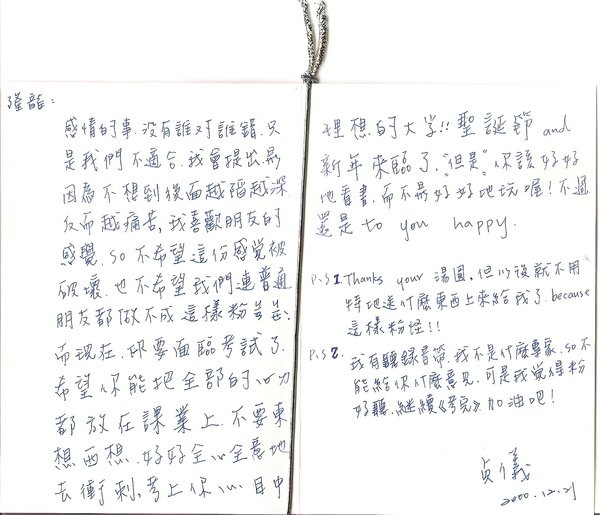 瑾龍：
感情的事.沒有誰對誰錯.只
是我們不適合.我會提出.是
因為不想到後面越陷越深.
反而越痛苦.我喜歡朋友的
感覺.so不希望這份感覺被
破壞.也不希望我們連普通
朋友都做不成這樣粉ㄓㄓ:
而現在.即要面臨考試了.
希望你能把全部的心力
都放在課業上.不要東
想西想.好好全心全意地
去衝刺.考上你心目中
理想的大学!!聖誕節and
新年來臨了."但是"你該好好
地看書.而不是好好地玩喔!不過
還是to you happy.
P.S1.Thanks your湯圓.但以後就不用
特地送什麼東西上來給我了.because
這樣粉怪!!
P.S2.我有聽錄音帶.我不是什麼專家.so不
能給你什麼意見.可是我覺得粉
好聽.繼續《考完》加油吧!
貞儀
2000.12.21